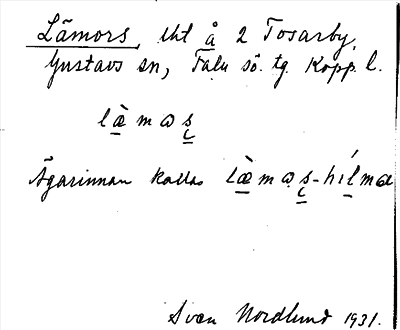 Lämors, lht å 2 Tosarby,
Gustavs sn, Falu sö. tg. Kopp. l.
læ̀mɷş
Ägarinnan kallas læ̀mɷş-hílma
Sven Nordlund 1931.